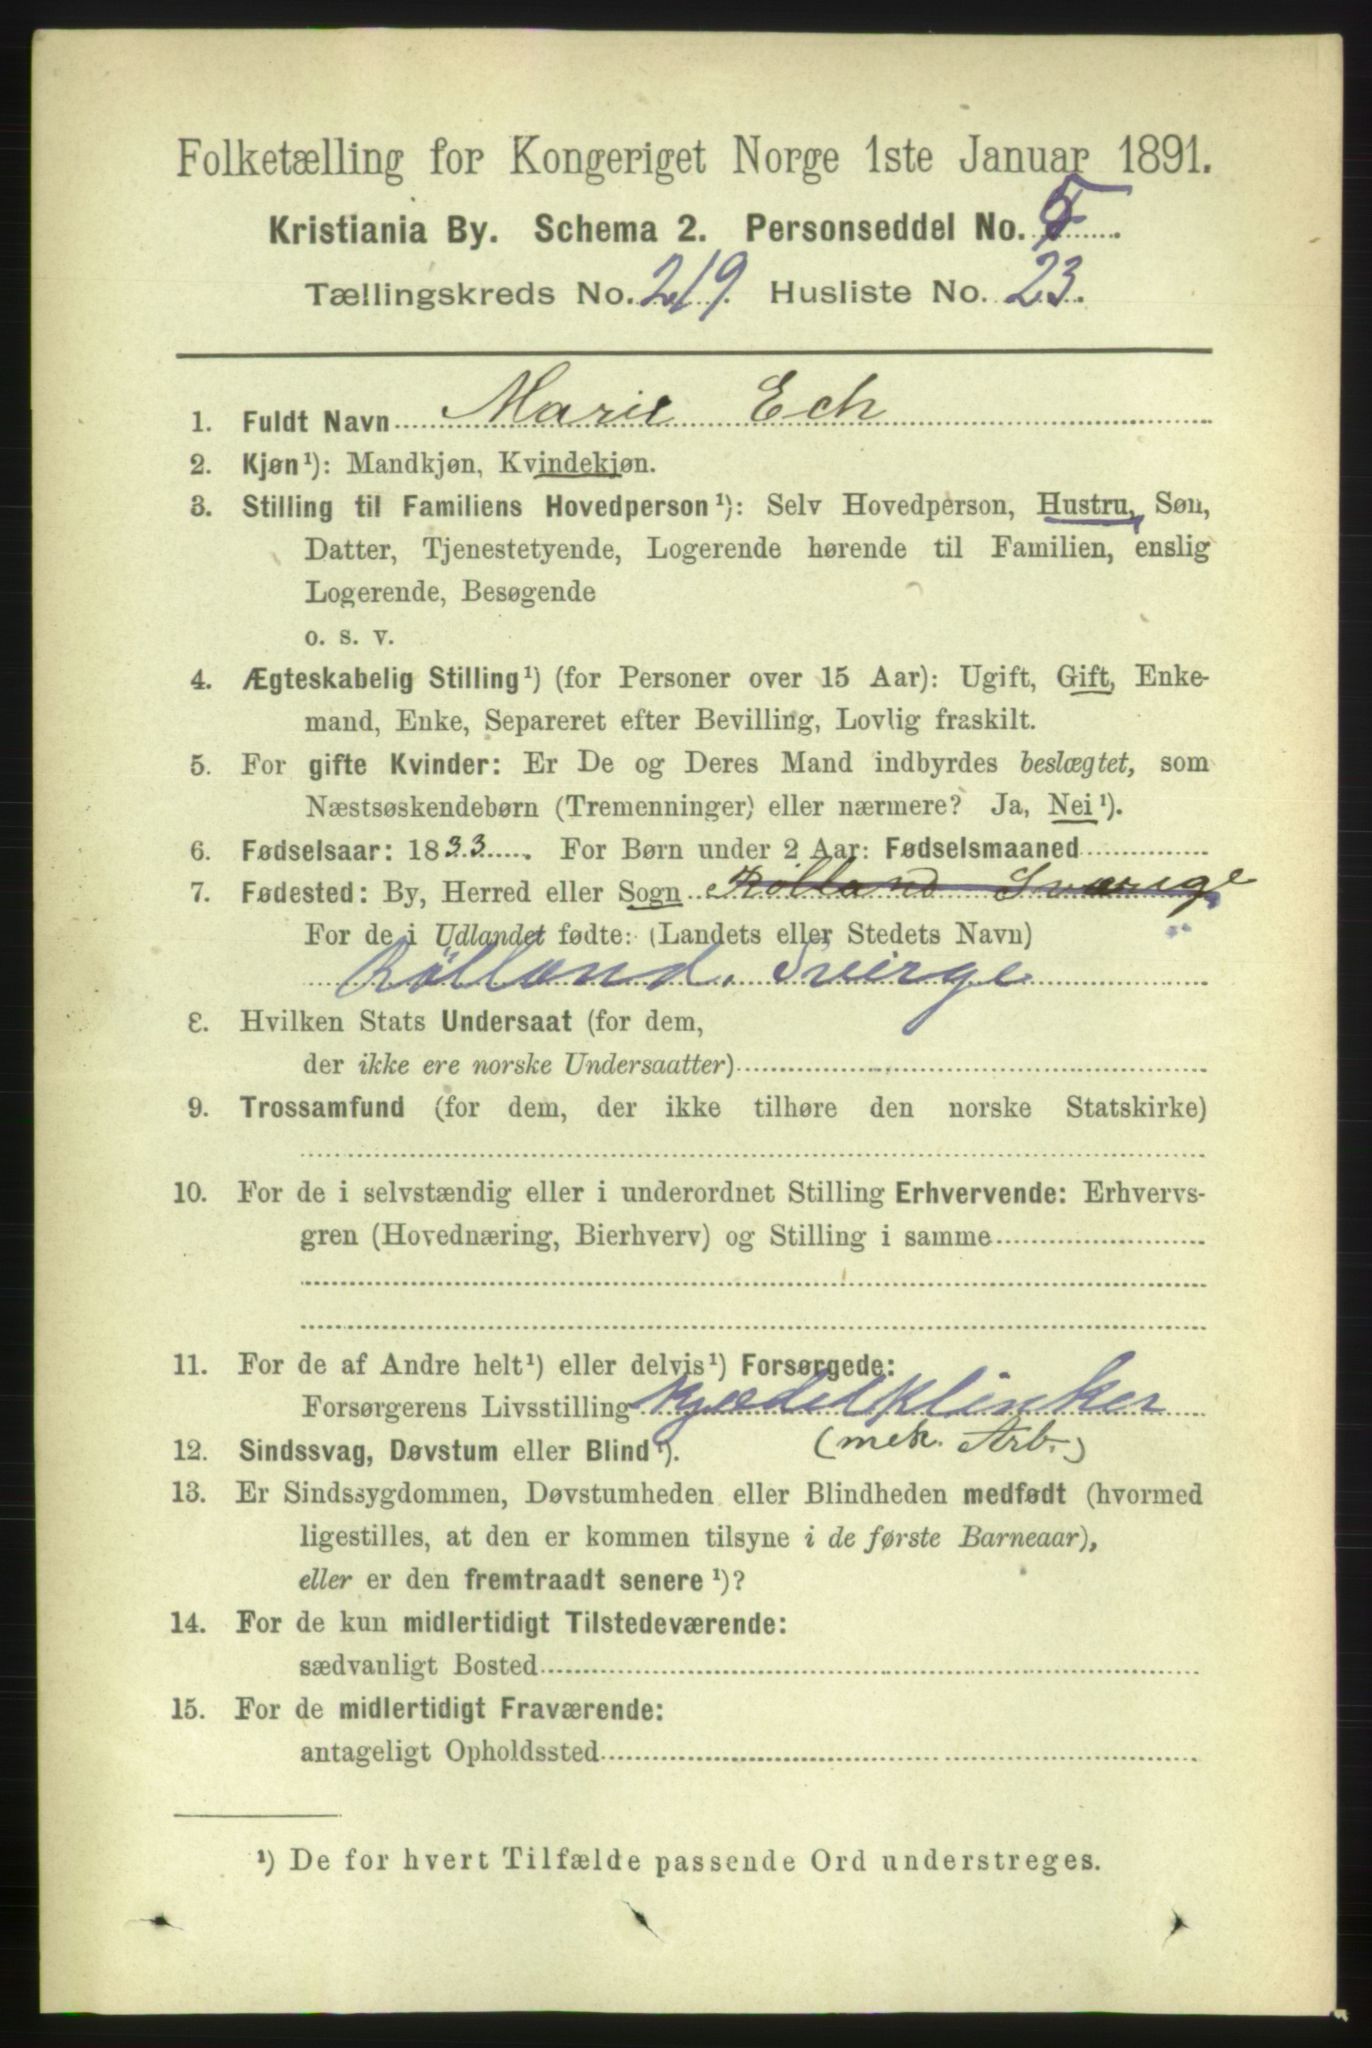 Folketælling for Kongeriget Norge 1ste Januar 1891.
Kristiania By. Schema 2. Personseddel No.
Tællingskreds No. 219. Husliste No. 23.
1. Fuldt Navn Marie Ech
2. Kjøn¹): Mandkjøn, Kvindekjøn.
3. Stilling til Familiens Hovedperson¹): Selv Hovedperson, Hustru, Søn,
Datter, Tjenestetyende, Logerende hørende til Familien, enslig
Logerende, Besøgende
o. s. v.
4. Ægteskabelig Stilling¹) (for Personer over 15 Aar): Ugift, Gift, Enke-
mand, Enke, Separeret efter Bevilling, Lovlig fraskilt.
5. For gifte Kvinder: Er De og Deres Mand indbyrdes beslægtet, som
Næstsøskendebørn (Tremenninger) eller nærmere? Ja, Nei¹).
6. Fødselsaar: 1833. For Børn under 2 Aar: Fødselsmaaned
7. Fødested: By, Herred eller Sogn Rölland Sværige
For de i Udlandet fødte: (Landets eller Stedets Navn)
Rölland. Sverge
8. Hvilken Stats Undersaat (for dem,
der ikke ere norske Undersaatter)
9. Trossamfund (for dem, der ikke tilhøre den norske Statskirke)
10. For de i selvstændig eller i underordnet Stilling Erhvervende: Erhvervs-
gren (Hovednæring, Bierhverv) og Stilling i samme
11. For de af Andre helt¹) eller delvis¹) Forsørgede:
Forsørgerens Livsstilling Kjedelklinker
(mek. Arb.)
12. Sindssvag, Døvstum eller Blind¹).
13. Er Sindssygdommen, Døvstumheden eller Blindheden medfødt (hvormed
ligestilles, at den er kommen tilsyne i de første Barneaar),
eller er den fremtraadt senere¹)?
14. For de kun midlertidigt Tilstedeværende:
sædvanligt Bosted
15. For de midlertidigt Fraværende:
antageligt Opholdssted
¹) De for hvert Tilfælde passende Ord understreges.